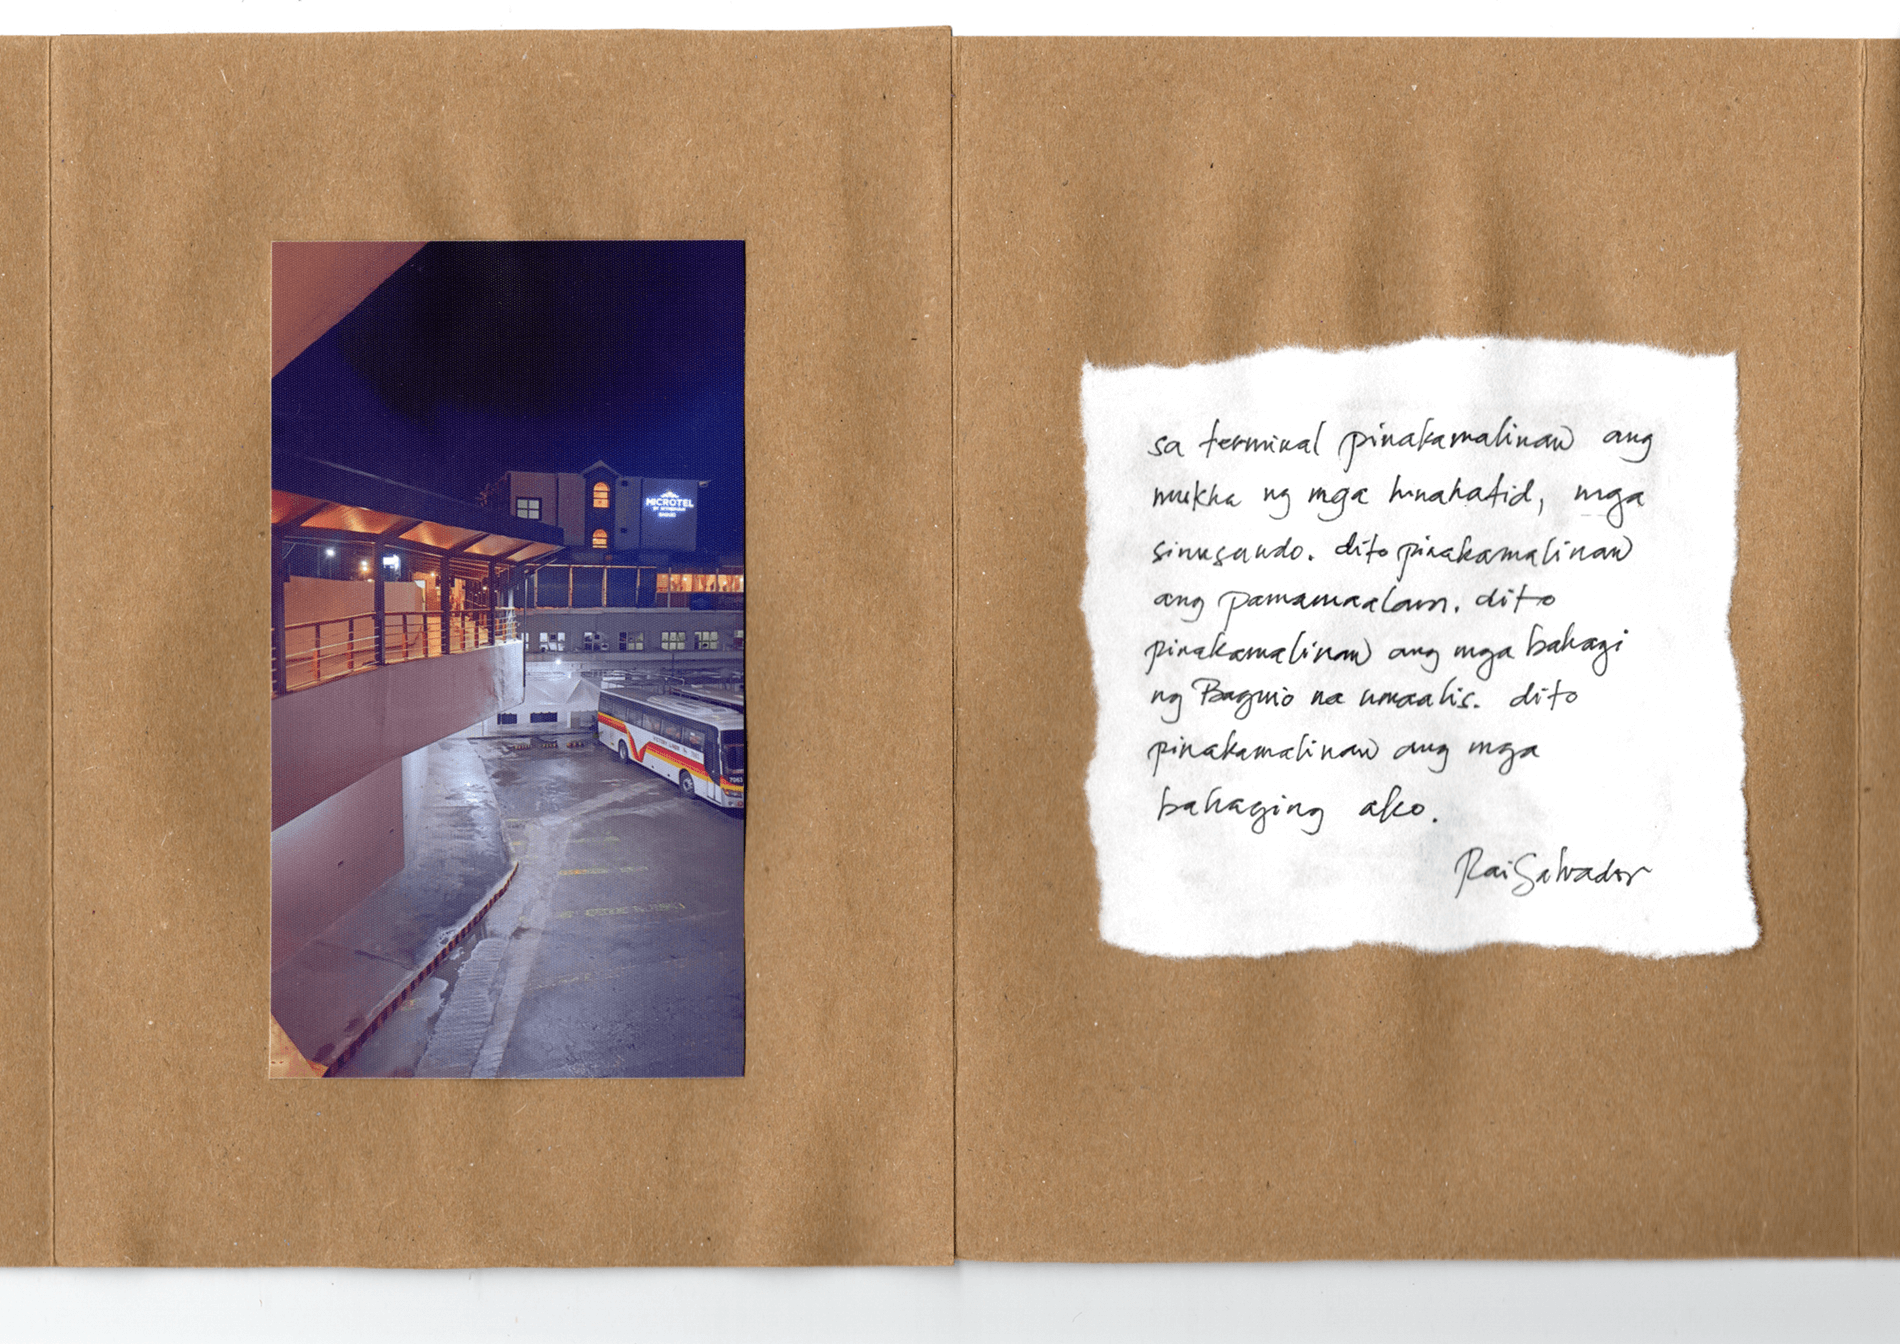 MICROTEL
BY WYNDHAM
BAGUIO
VICTORY LINER
7063
sa terminal pinakamalinaw ang
mukha ng mga hinahatid, mga
sinusundo. dito pinakamalinaw
ang pamamaalam. dito
pinakamalinaw ang mga bahagi
ng Baguio na umaalis. dito
pinakamalinaw ang mga
bahaging ako.
Rai Salvador